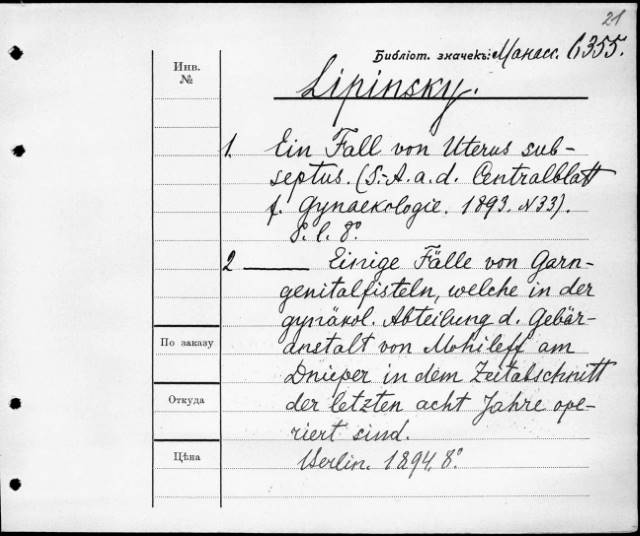 21
Библіот. значекъ: Манасс. 6355.
Инв.
№
Lipinsky.
1. Ein Fall von Uterus sub-
septus. (S.-A. a. d. Centralblatt
f. Gynaekologie. 1893. N33).
8.l. 8°.
2 —— Einige Fälle von Garn-
genitalfisteln, welche in der
gynäkol. Abteilung d. Gebär-
anstalt von Mohileff am
Dnieper in dem Zeitabschnitt
der letzten acht Jahre ope-
riert sind.
Berlin. 1894. 8°.
По заказу
Откуда
Цѣна